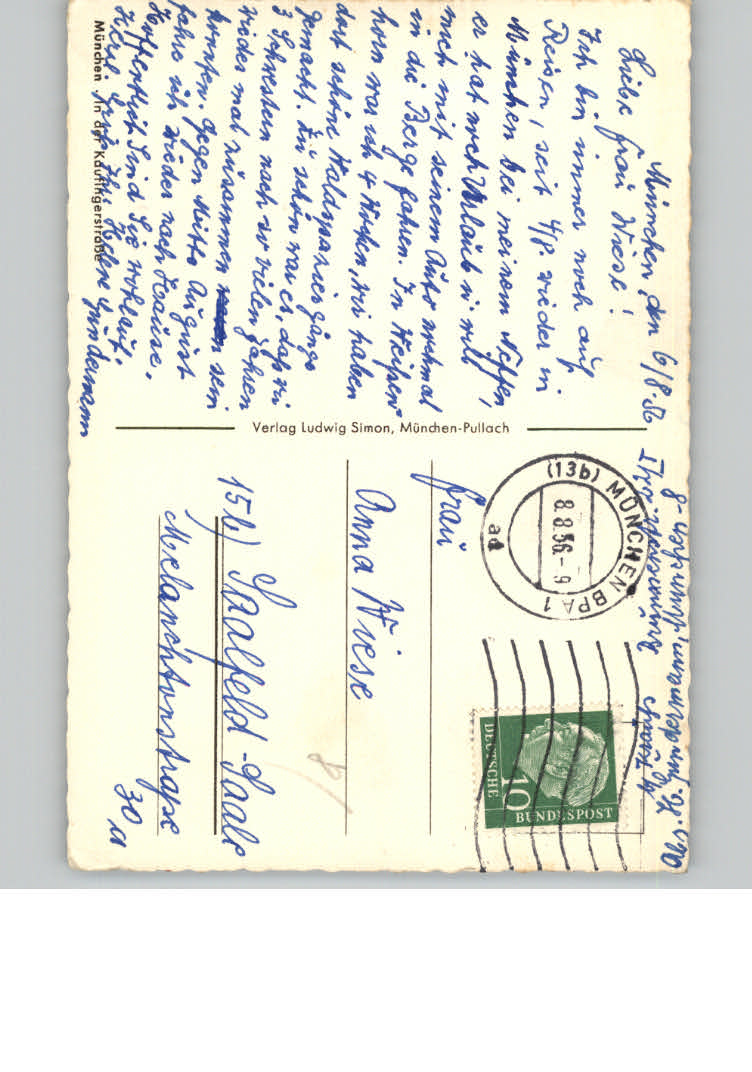 München, den 6/8.56
Liebe Frau Wiese!
Ich bin immer noch auf
Reisen, seit 4/8. wieder in
München bei meinem Neffen,
er hat noch Urlaub u. will
mich mit seinem Auto nochmal
in die Berge fahren. In Weißen-
horn war ich 4 Wochen, wir haben
dort schöne Waldspaziergänge
gemacht. Zu schön war es, daß wir
3 Schwestern nach so vielen Jahren
wieder mal zusammen sein
konnten. Gegen Mitte August
fahre ich wieder nach Hause.
Hoffentlich sind Sie wohlauf.
Herzl. Grüße Ihre Helene Lindemann
München. In der Kaufingerstraße
Verlag Ludwig Simon, München-Pullach
(13b) MÜNCHEN BPA 1
8.8.56.-9
ad
DEUTSCHE
BUNDESPOST
10
Frau
Anna Wiese
15b) Saalfeld-Saale
Melanchtonstraße
30,a
8
Abs. H.
München